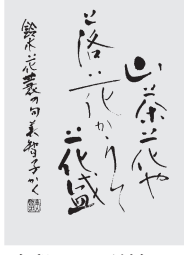 山茶花や
落花かゝりて
花盛
鈴木花蓑の句美智子かく